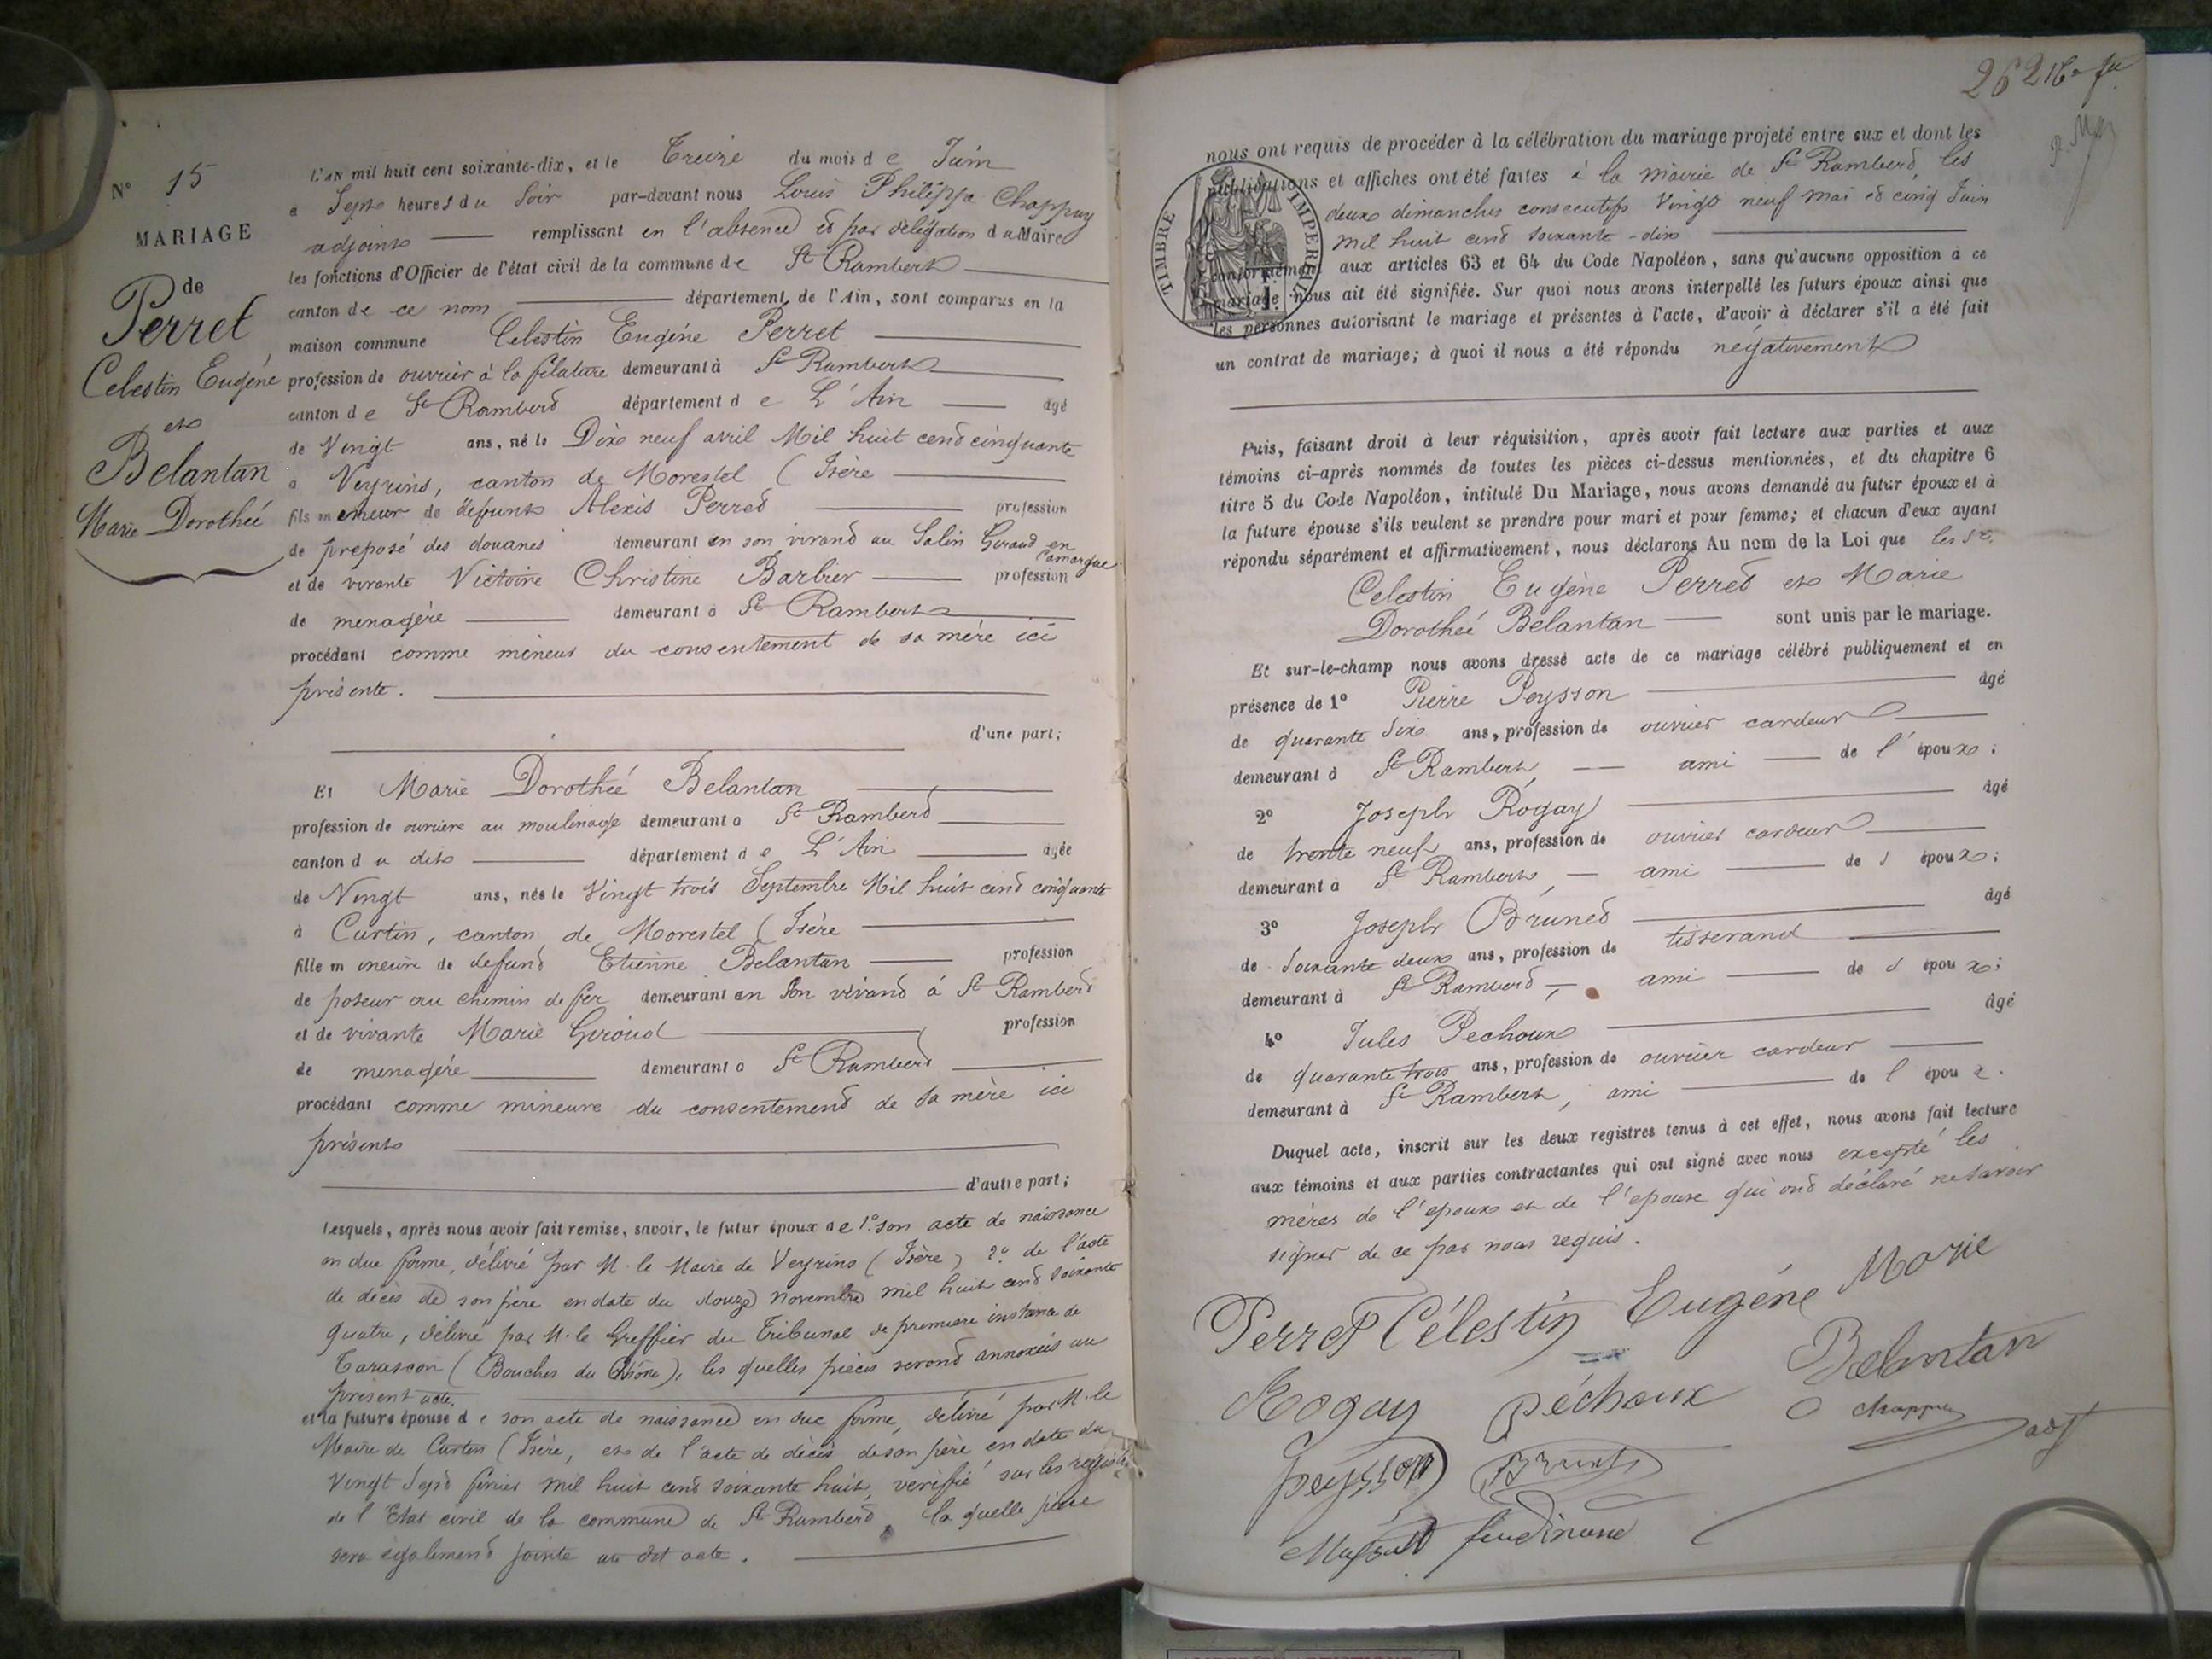 N° 15
MARIAGE
de
Perret
Celestin Eugéne
et
Belantan
Marie Dorotheé
L'AN mil huit cent soixante-dix, et le Treize du mois de Juin
à Sept heures du Soir par-devant nous Louis Philippe Chappuy
adjoint remplissant en l'absence et par délégation du Maire
les fonctions d'Officier de l'état civil de la commune de St Rambert
canton de ce nom département de l'Ain, sont comparus en la
maison commune Celestin Eugéne Perret
profession de ouvrier à la filature demeurant à St Rambert
canton de St Rambert département de L'Ain âgé
de Vingt ans, né le Dix neuf avril Mil huit cent cinquante
à Veyrins, canton de Morestel (Isère
fils mineur de défunt Alexis Perret profession
de preposé des douanes demeurant en son vivant au Salin Giraud en Camargue
et de vivante Victoine Christine Barbier profession
de menagére demeurant à St Rambert
procédant comme mineur du consentement de sa mère ici
présente.
d'une part;
Et Marie Dorotheé Belantan
profession de ouvriere au moulinage demeurant à St Rambert
canton du dit département de L'Ain âgée
de Vingt ans, née le Vingt trois Septembre Mil huit cent cinquante
à Curtin, canton de Morestel (Isère
fille mineure de defunt Etienne Belantan profession
de poseur au chemin de fer demeurant en son vivant à St Rambert
et de vivante Marie Giroud profession
de menagére demeurant à St Rambert
procédant comme mineure du consentement de sa mère ici
présente
d'autre part;
Lesquels, après nous avoir fait remise, savoir, le futur époux de 1° son acte de naissance
en due forme, délivré par M. le Maire de Veyrins (Isère) 2° de l'acte
de décès de son père en date du douze novembre mil huit cent soixante
quatre, délivré par M. le Greffier du Tribunal de première instance de
Tarascon (Bouches du Rhône), les quelles pièces seront annexeés au
présent acte.
et la future épouse de son acte de naissance en due forme, délivré par M. le
Maire de Curtin (Isère, et de l'acte de décès de son père en date du
Vingt Sept février mil huit cent soixante huit, verifié sur les registres
de l'Etat civil de la commune de St Rambert, la quelle pièce
sera également jointe au dit acte.
262
nous ont requis de procéder à la célébration du mariage projeté entre eux et dont les
publications et affiches ont été faites à la mairie de St Rambert, les
deux dimanches consecutifs Vingt neuf mai et cinq Juin
mil huit cent soixante-dix
TIMBRE IMPERIAL
conformément aux articles 63 et 64 du Code Napoléon, sans qu'aucune opposition à ce
mariage nous ait été signifiée. Sur quoi nous avons interpellé les futurs époux ainsi que
les personnes autorisant le mariage et présentes à l'acte, d'avoir à déclarer s'il a été fait
un contrat de mariage; à quoi il nous a été répondu négativement
Puis, faisant droit à leur réquisition, après avoir fait lecture aux parties et aux
témoins ci-après nommés de toutes les pièces ci-dessus mentionnées, et du chapitre 6
titre 5 du Code Napoléon, intitulé Du Mariage, nous avons demandé au futur époux et à
la future épouse s'ils veulent se prendre pour mari et pour femme; et chacun d'eux ayant
répondu séparément et affirmativement, nous déclarons Au nom de la Loi que les
Celestin Eugène Perret et Marie
Dorotheé Belantan sont unis par le mariage.
Et sur-le-champ nous avons dressé acte de ce mariage célébré publiquement et en
présence de 1° Pierre Peysson âgé
de quarante six ans, profession de ouvrier cardeur
demeurant à St Rambert, ami de l'époux;
2° Joseph Rogay âgé
de trente neuf ans, profession de ouvrier cardeur
demeurant à St Rambert, ami de l époux;
3° Joseph Brunet âgé
de Soixante deux ans, profession de tisserand
demeurant à St Rambert, ami de l époux;
4° Jules Pechoux âgé
de quarante trois ans, profession de ouvrier cardeur
demeurant à St Rambert, ami de l époux.
Duquel acte, inscrit sur les deux registres tenus à cet effet, nous avons fait lecture
aux témoins et aux parties contractantes qui ont signé avec nous excepté les
mères de l'époux et de l'epouse qui ont déclaré ne savoir
signer de ce par nous requis.
Perret Célestin Eugéne Marie
Belantan
Rogay Péchoux Chappuy
adjt
peysson Brunet
ferdinand